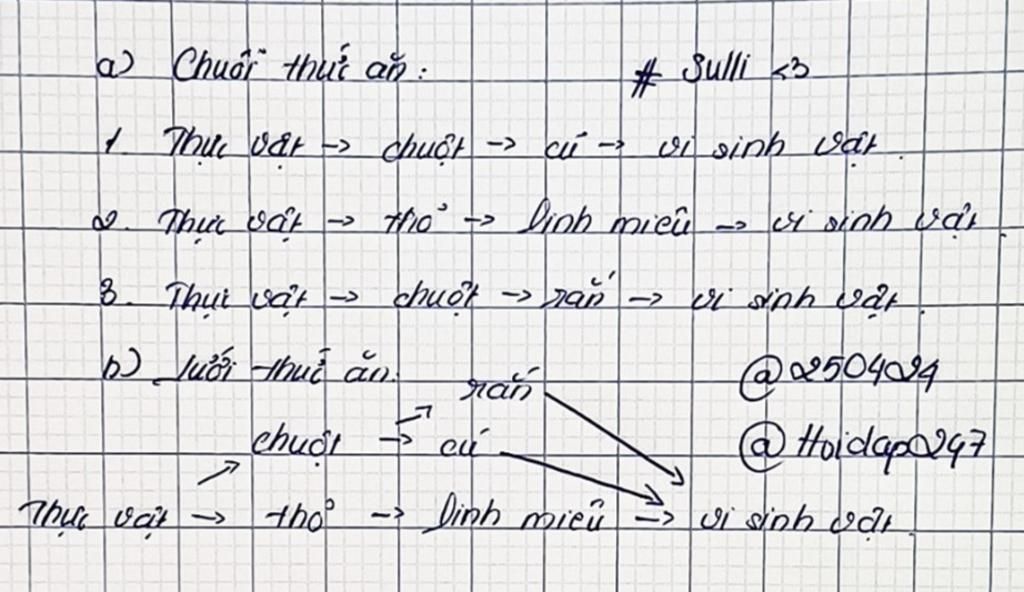 a) Chuỗi thức ăn: # Sulli <3
1. Thực vật → chuột → cú → vi sinh vật.
2. Thực vật → thỏ → linh miêu → vi sinh vật.
3. Thực vật → chuột → rắn → vi sinh vật.
b) Lưới thức ăn: @250424
rắn
chuột → cú @Hoidap247
Thực vật → thỏ → linh miêu → vi sinh vật.